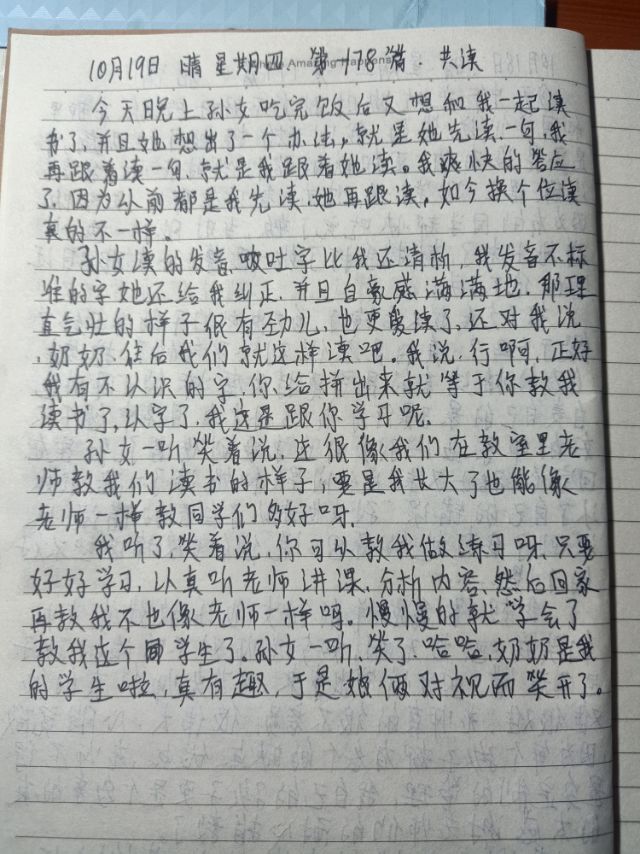 10月19日 晴 星期四 第178篇. 共读
Amazing Happens
今天晚上孙女吃完饭后又想和我一起读
书了,并且她想出了一个办法,就是她先读一句,我
再跟着读一句,就是我跟着她读。我爽快的答应
了,因为从前都是我先读,她再跟读,如今换个位读
真的不一样。
孙女读的发音、咬吐字比我还清晰,我发音不标
准的字她还给我纠正,并且自豪感满满地,那理
直气壮的样子很有劲儿,也更爱读了,还对我说
,奶奶,往后我们就这样读吧。我说,行啊,正好
我有不认识的字,你给拼出来就等于你教我
读书了,认字了,我这是跟你学习呢,
孙女一听笑着说,这很像我们在教室里老
师教我们读书的样子,要是我长大了也能像
老师一样教同学们多好呀.
我听了,笑着说,你可以教我做练习呀,只要
好好学习,认真听老师讲课,分析内容,然后回家
再教我不也像老师一样吗。慢慢的就学会了
教我这个学生了。孙女一听,笑了,哈哈,奶奶是我
的学生啦,真有趣,于是她俩对视而笑开了。